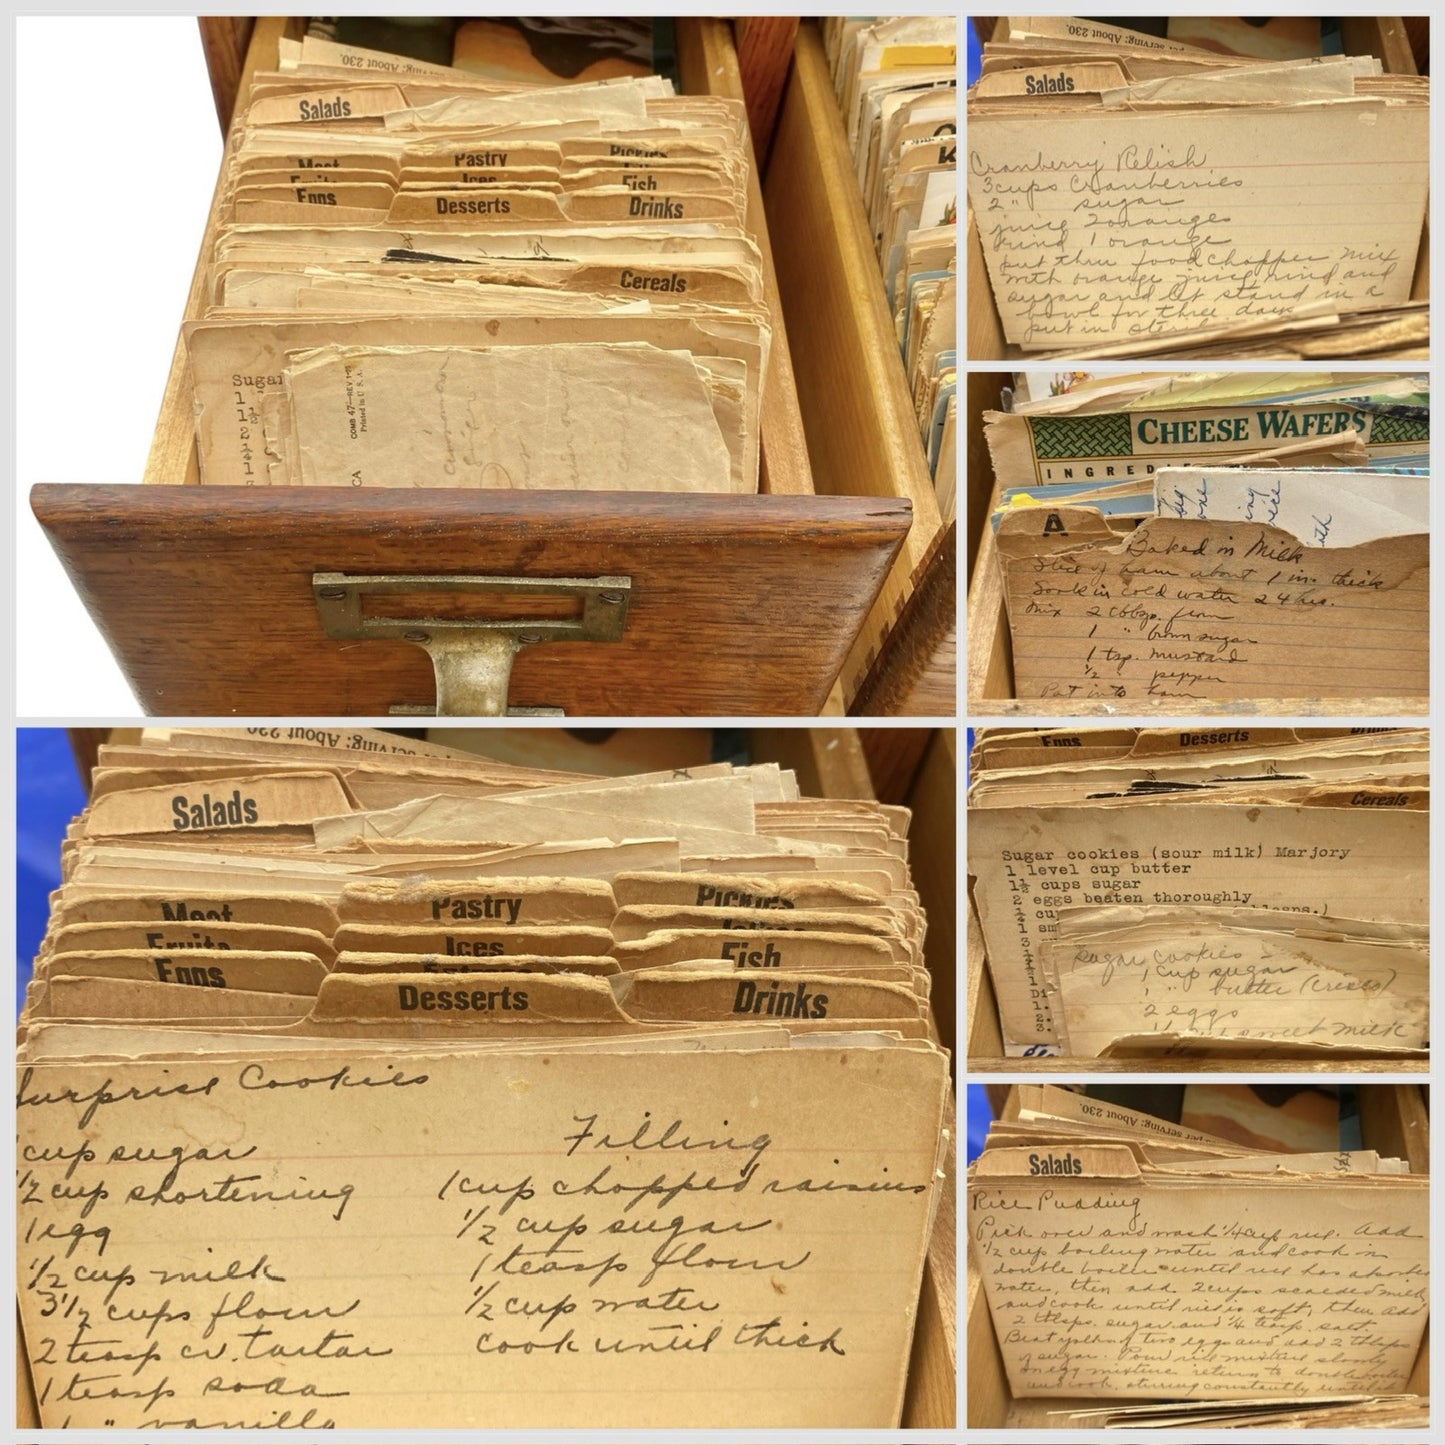 per serving: About 230.
Salads
Meat
Pastry
Pickles
Fruits
Ices
Fish
Eggs
Desserts
Drinks
Cereals
Sugar
COMB 47—REV
Printed in U. S. A.
CA
K
per serving: About 230.
Salads
Cranberry Relish
3 cups Cranberries
2 " sugar
juice 2 oranges
rind 1 orange
put thru food chopper mix
with orange juice rind and
sugar and let stand in a
bowl for three days
put in
CHEESE WAFERS
INGRED
A
Baked in Milk
Slice of ham about 1 in. thick
Soak in cold water 24 hrs.
Mix 2 
1 " brown sugar
1 tsp. mustard
1/2 " pepper
Put into ham
per serving: About 230.
Salads
Meat
Pastry
Pickles
Fruits
Ices
Fish
Eggs
Desserts
Drinks
Surprise Cookies
cup sugar
1/2 cup shortening
1 egg
1/2 cup milk
3 1/2 cups flour
2 teasp cr. tartar
1 teasp soda
1 " vanilla
Filling
1 cup chopped raisins
1/2 cup sugar
1 teasp flour
1/2 cup water
cook until thick
Eggs
Desserts
Drinks
Cereals
Sugar cookies (sour milk) Marjory
1 level cup butter
1½ cups sugar
2 eggs beaten thoroughly
Sugar Cookies
1 cup sugar
1 " butter (crisco)
2 eggs
sweet milk
per serving: About 230.
Salads
Rice Pudding
Pick over and wash 1/4 cup rice. Add
1/2 cup boiling water and cook in
double boiler until rice has absorbed
water, then add 2 cups scalded milk
and cook until rice is soft, then add
2 tblsps. sugar and 1/4 teasp. salt.
Beat yolks of two eggs and add 2 tblsps
of sugar. Pour rice mixture slowly
on egg mixture return to double boiler
and cook, stirring constantly until it